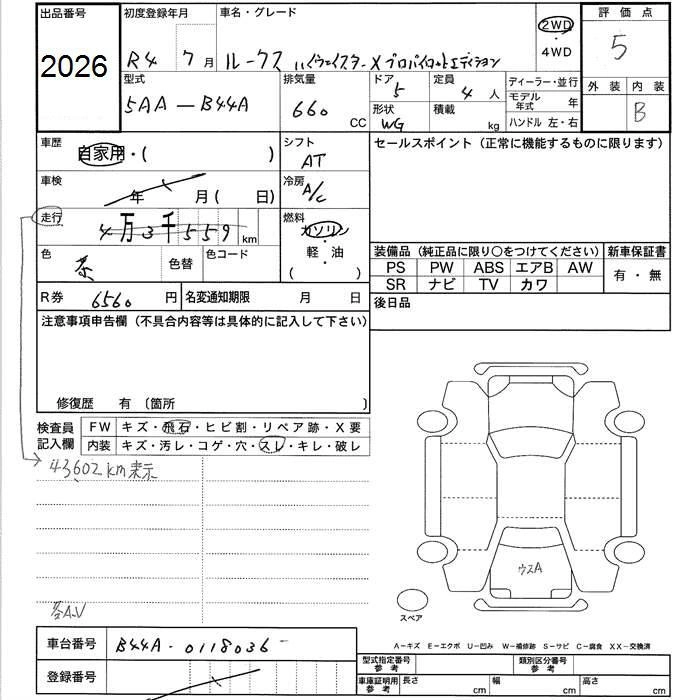 出品番号 初度登録年月 車名・グレード 2WD・4WD 評価点
2026 R4 7月 ルークス ハイウェイスターX プロパイロットエディション 5
型式 排気量 ドア 定員 ディーラー・並行 外装 内装
5AA-B44A 660 CC 5 4人 モデル年式 年 B
形状 積載 ハンドル 左・右
WG kg
車歴 自家用・( ) シフト AT セールスポイント(正常に機能するものに限ります)
車検 年 月(日) 冷房 A/C
走行 4万3千559km 燃料 ガソリン・軽油 ( )
色 茶 色替 色コード
装備品(純正品に限り○をつけてください) 新車保証書
PS PW ABS エアB AW 有・無
SR ナビ TV カワ
R券 6560円 名変通知期限 月 日 後日品
注意事項申告欄(不具合内容等は具体的に記入して下さい)
修復歴 有〔箇所 〕
検査員記入欄 FW キズ・飛石・ヒビ割・リペア跡・X要
内装 キズ・汚レ・コゲ・穴・スレ・キレ・破レ
43,602km表示
ウスA
スペア
各A.U
A-キズ E-エクボ U-凹み W-補修跡 S-サビ C-腐食 XX-交換済
車台番号 B44A-0118036
型式指定番号参考 類別区分番号参考
登録番号
車庫証明用参考 長さ cm 幅 cm 高さ cm